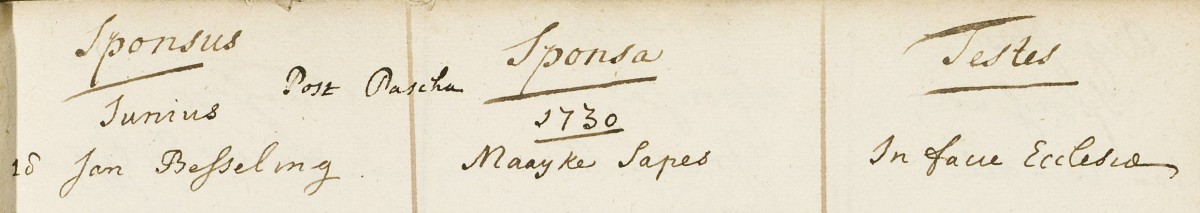 Sponsus Sponsa Testes
Post Pascha
Junius 1730
Jan Besseling Maayke Sapes In facie Ecclesiæ